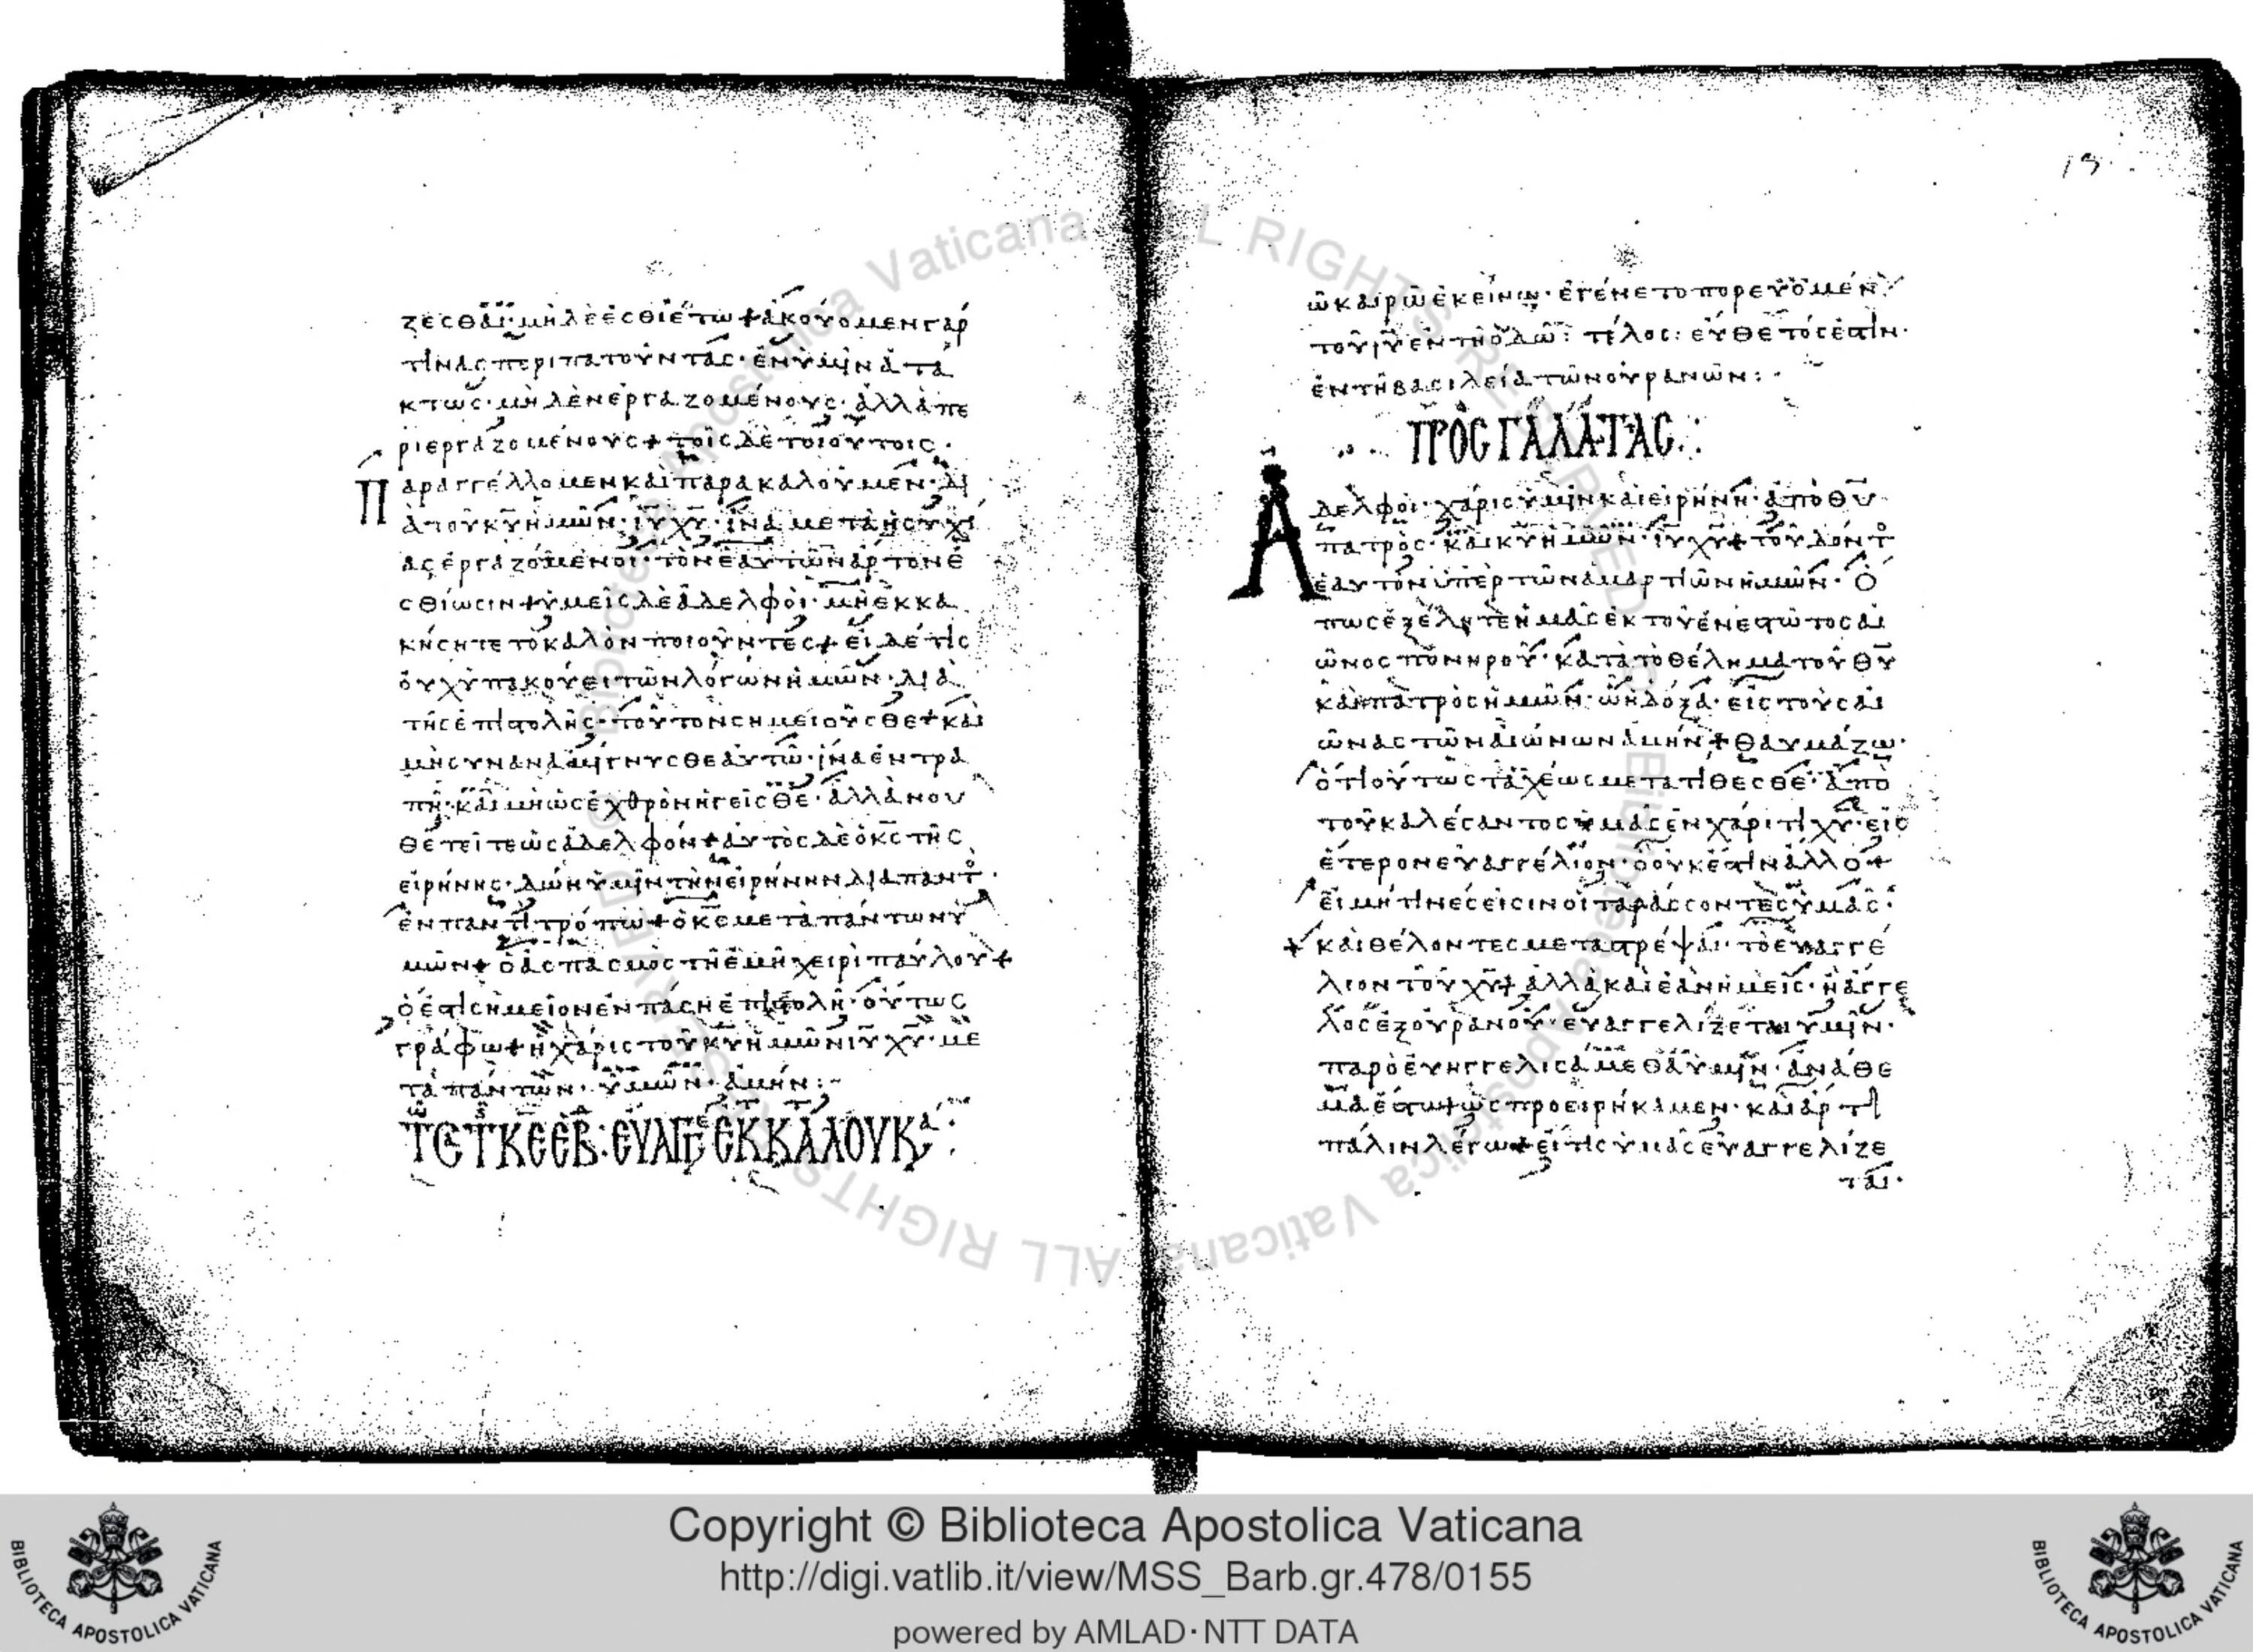 ζεσθαι· μὴ δὲ ἐσθιέτω + ἀκούομεν γὰρ
τινὰς περιπατοῦντας· ἐν ὑμῖν ἀτά
κτως· μὴ δὲν ἐργαζομένους· ἀλλὰ πε
ριεργαζομένους + τοῖς δὲ τοιούτοις·
Παραγγέλλομεν καὶ παρακαλοῦμεν· δι
ὰ τοῦ κυ ἡμῶν· ιυ χυ· ἵνα μετὰ ἡσυχί
ας ἐργαζόμενοι· τὸν ἑαυτῶν ἄρτον ἐ
σθίωσιν + ὑμεῖς δὲ ἀδελφοὶ· μὴ ἐκκα
κήσητε τὸ καλὸν ποιοῦντες + εἰ δέ τις
οὐχ ὑπακούει τῶν λόγων ἡμῶν· διὰ
τῆς ἐπιστολῆς· τοῦτον σημειοῦσθε + καὶ
μὴ συναναμίγνυσθε αὐτῶ· ἵνα ἐντρα
πῆ· καὶ μὴ ὡς ἐχθρὸν ἡγεῖσθε· ἀλλὰ νου
θετεῖτε ὡς ἀδελφόν + αὐτὸς δὲ ὁ κς τῆς
εἰρήνης· δώη ὑμῖν τὴν εἰρήνην διαπαντ
ἐν παντὶ τρόπω + ὁ κς μετὰ πάντων ὑ
μῶν + ὁ ἀσπασμὸς τῆ ἐμῆ χειρὶ παύλου +
ὅ ἐστι σημεῖον ἐν πάση ἐπιστολῆ· οὕτως
γράφω + ἡ χάρις τοῦ κυ ἡμῶν ιυ χυ· με
τὰ πάντων· ὑμῶν· ἀμήν:-
ΕΚ Κ ΛΟΥΚ
ῶ καιρῶ ἐκείνω· ἐγένετο πορευομέν
τοῦ ιυ ἐν τῆ ὁδῶ: τέλος: εὔθετός ἐστιν·
ἐν τῆ βασιλεία τῶν οὐρανῶν:·
ΠΡΟΣ ΓΑΛΑΤΑΣ:
Ἀδελφοὶ· χάρις ὑμῖν καὶ εἰρήνη· ἀπὸ θυ
πατρὸς· καὶ κυ ἡμῶν· ιυ χυ + τοῦ δόντ
ἑαυτὸν ὑπὲρ τῶν ἁμαρτιῶν ἡμῶν· ὅ
πως ἐξέληται ἡμᾶς ἐκ τοῦ ἐνεστῶτος αἰ
ῶνος πονηροῦ· κατὰ τὸ θέλημα τοῦ θυ
καὶ πατρὸς ἡμῶν· ὧ ἡ δόξα· εἰς τοὺς αἰ
ῶνας τῶν αἰώνων ἀμήν + θαυμάζω·
ὅτι οὕτως ταχέως μετατίθεσθε· ἀπὸ
τοῦ καλέσαντος ὑμᾶς ἐν χάριτι χυ· εἰς
ἕτερον εὐαγγέλιον· ὃ οὐκ ἔστιν ἄλλο +
εἰ μή τινές εἰσιν οἱ ταράσσοντες ὑμᾶς·
+ καὶ θέλοντες μεταστρέψαι· τὸ εὐαγγέ
λιον τοῦ χυ + ἀλλὰ καὶ ἐὰν ἡμεῖς· ἢ ἄγγε
λος ἐξ οὐρανοῦ· εὐαγγελίζεται ὑμῖν·
παρ ὃ εὐηγγελισάμεθα ὑμῖν· ἀνάθε
μα ἔστω + ὡς προειρήκαμεν· καὶ ἄρτι
πάλιν λέγω + εἴ τις ὑμᾶς εὐαγγελίζε
ται·
Copyright © Biblioteca Apostolica Vaticana
http://digi.vatlib.it/view/MSS_Barb.gr.478/0155
powered by AMLAD·NTT DATA
BIBLIOTECA APOSTOLICA VATICANA
BIBLIOTECA APOSTOLICA VATICANA